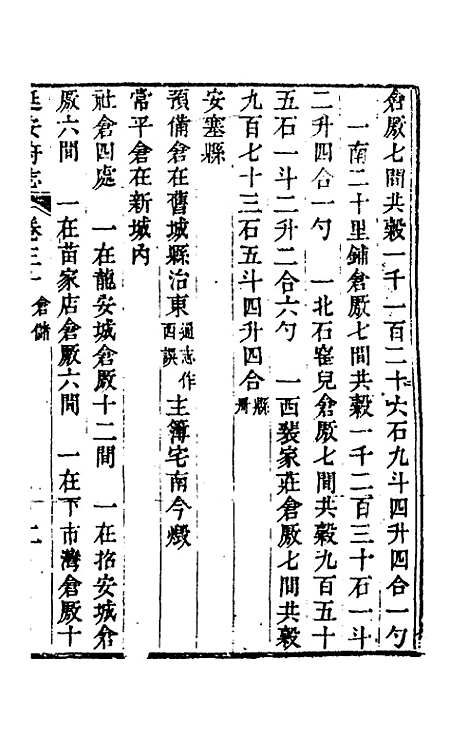 倉厫七間共榖一千一百二十六石九斗四升四合一勺
一南二十里鋪倉厫七間共榖一千二百三十石一斗
二升四合一勺　一北石窰兒倉厫七間共榖九百五十
五石一斗二升二合六勺　一西裴家莊倉厫七間共榖
九百七十三石五斗四升四合縣冊
安塞縣
預備倉在舊城縣治東通志作西誤主簿宅南今燬
常平倉在新城內
社倉四處　一在龍安城倉厫十二間　一在招安城倉
厫六間　一在苗家店倉厫六間　一在下市灣倉厫十
延安府志　卷三十　倉儲　二